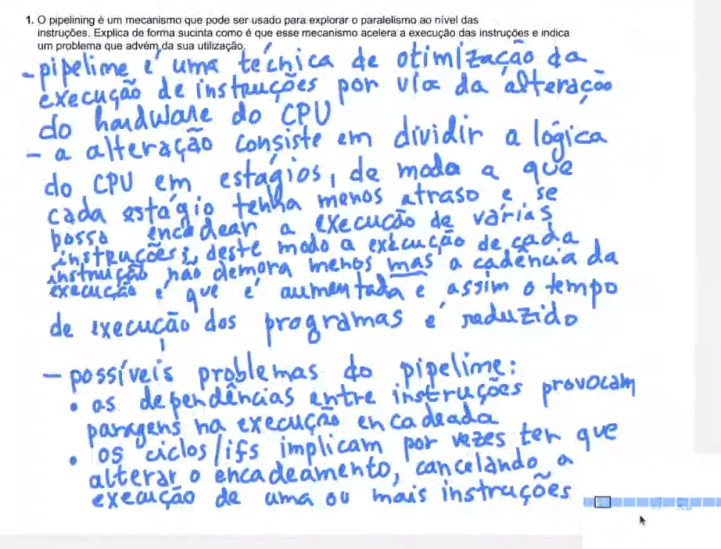 1. O pipelining é um mecanismo que pode ser usado para explorar o paralelismo ao nível das
instruções. Explica de forma sucinta como é que esse mecanismo acelera a execução das instruções e indica
um problema que advém da sua utilização.
- pipelime é uma técnica de otimização da
execução de instruções por via da alteração
do hardware do CPU
- a alteração consiste em dividir a lógica
do CPU em estágios, de modo a que
cada estágio tenha menos atraso e se
possa encadear a execução de várias
instruções; deste modo a execução de cada
instrução não demora menos mas a cadência da
execução é que é aumentada e assim o tempo
de execução dos programas é reduzido
- possíveis problemas do pipelime:
• as dependências entre instruções provocam
paragens na execução encadeada
• os ciclos/ifs implicam por vezes ter que
alterar o encadeamento, cancelando a
execução de uma ou mais instruções